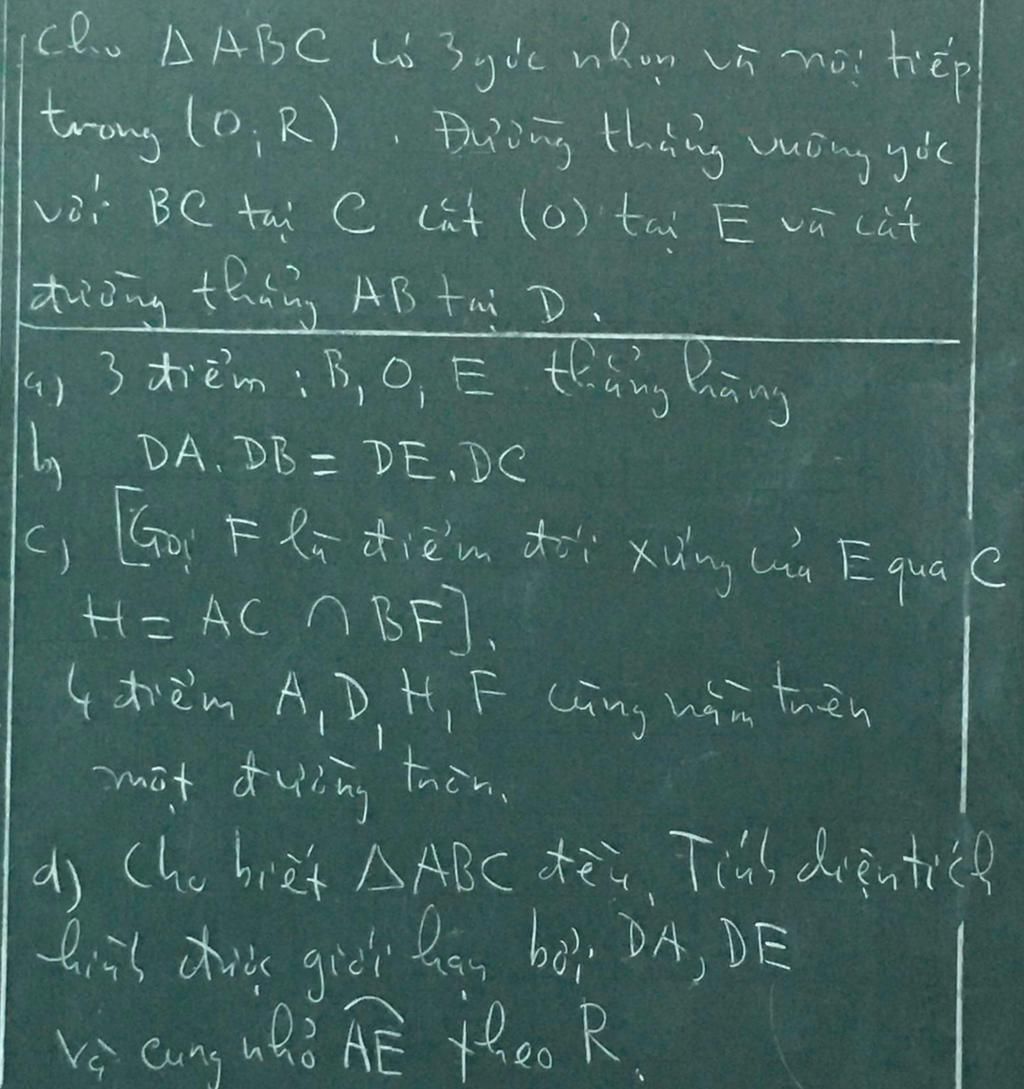 Cho ΔABC có 3 góc nhọn và nội tiếp
trong (O; R). Đường thẳng vuông góc
với BC tại C cắt (O) tại E và cắt
đường thẳng AB tại D.
a) 3 điểm: B, O, E thẳng hàng
b) DA.DB = DE.DC
c) [Gọi F là điểm đối xứng của E qua C
H = AC ∩ BF].
4 điểm A, D, H, F cùng nằm trên
một đường tròn.
d) Cho biết ΔABC đều. Tính diện tích
hình được giới hạn bởi DA, DE
và cung nhỏ AE theo R.